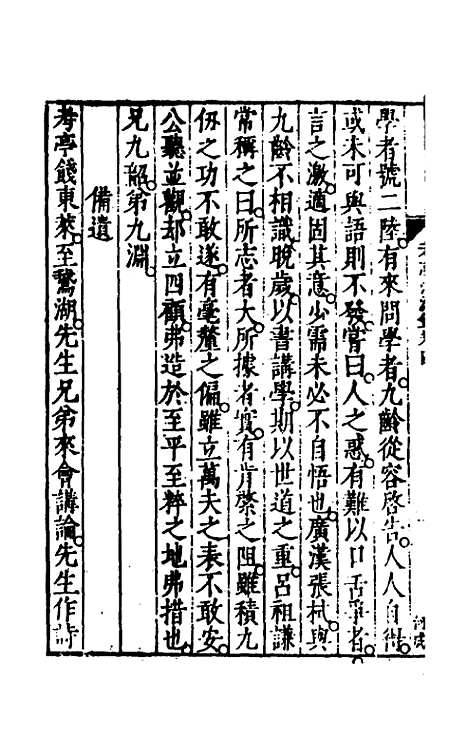 學者號二陸有來問學者九齡從容啓告人人自得
或未可與語則不發嘗曰人之惑有難以口舌爭者
言之激適固其意少需未必不自悟也廣漢張栻與
九齡不相識晚歲以書講學期以世道之重呂祖謙
常稱之曰所志者大所據者實有肯綮之阻雖積九
仞之功不敢遂有毫釐之偏雖立萬夫之表不敢安
公聽並觀却立四顧弗造於至平至粹之地弗措也
兄九韶弟九淵
備遺
考亭餞東萊至鵞湖先生兄弟來會講論先生作詩